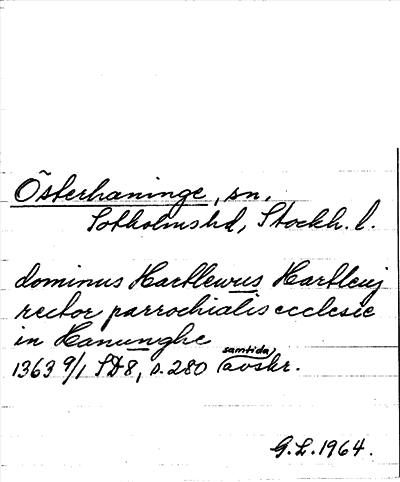 Österhaninge, sn.
Sotholmshd, Stockh. l.
dominus Hartlewus Hartleuj
rector parrochialis ecclesie
in Hanunghe
samtida
1363 9/1 SD8, s. 280 avskr.
G.L. 1964.